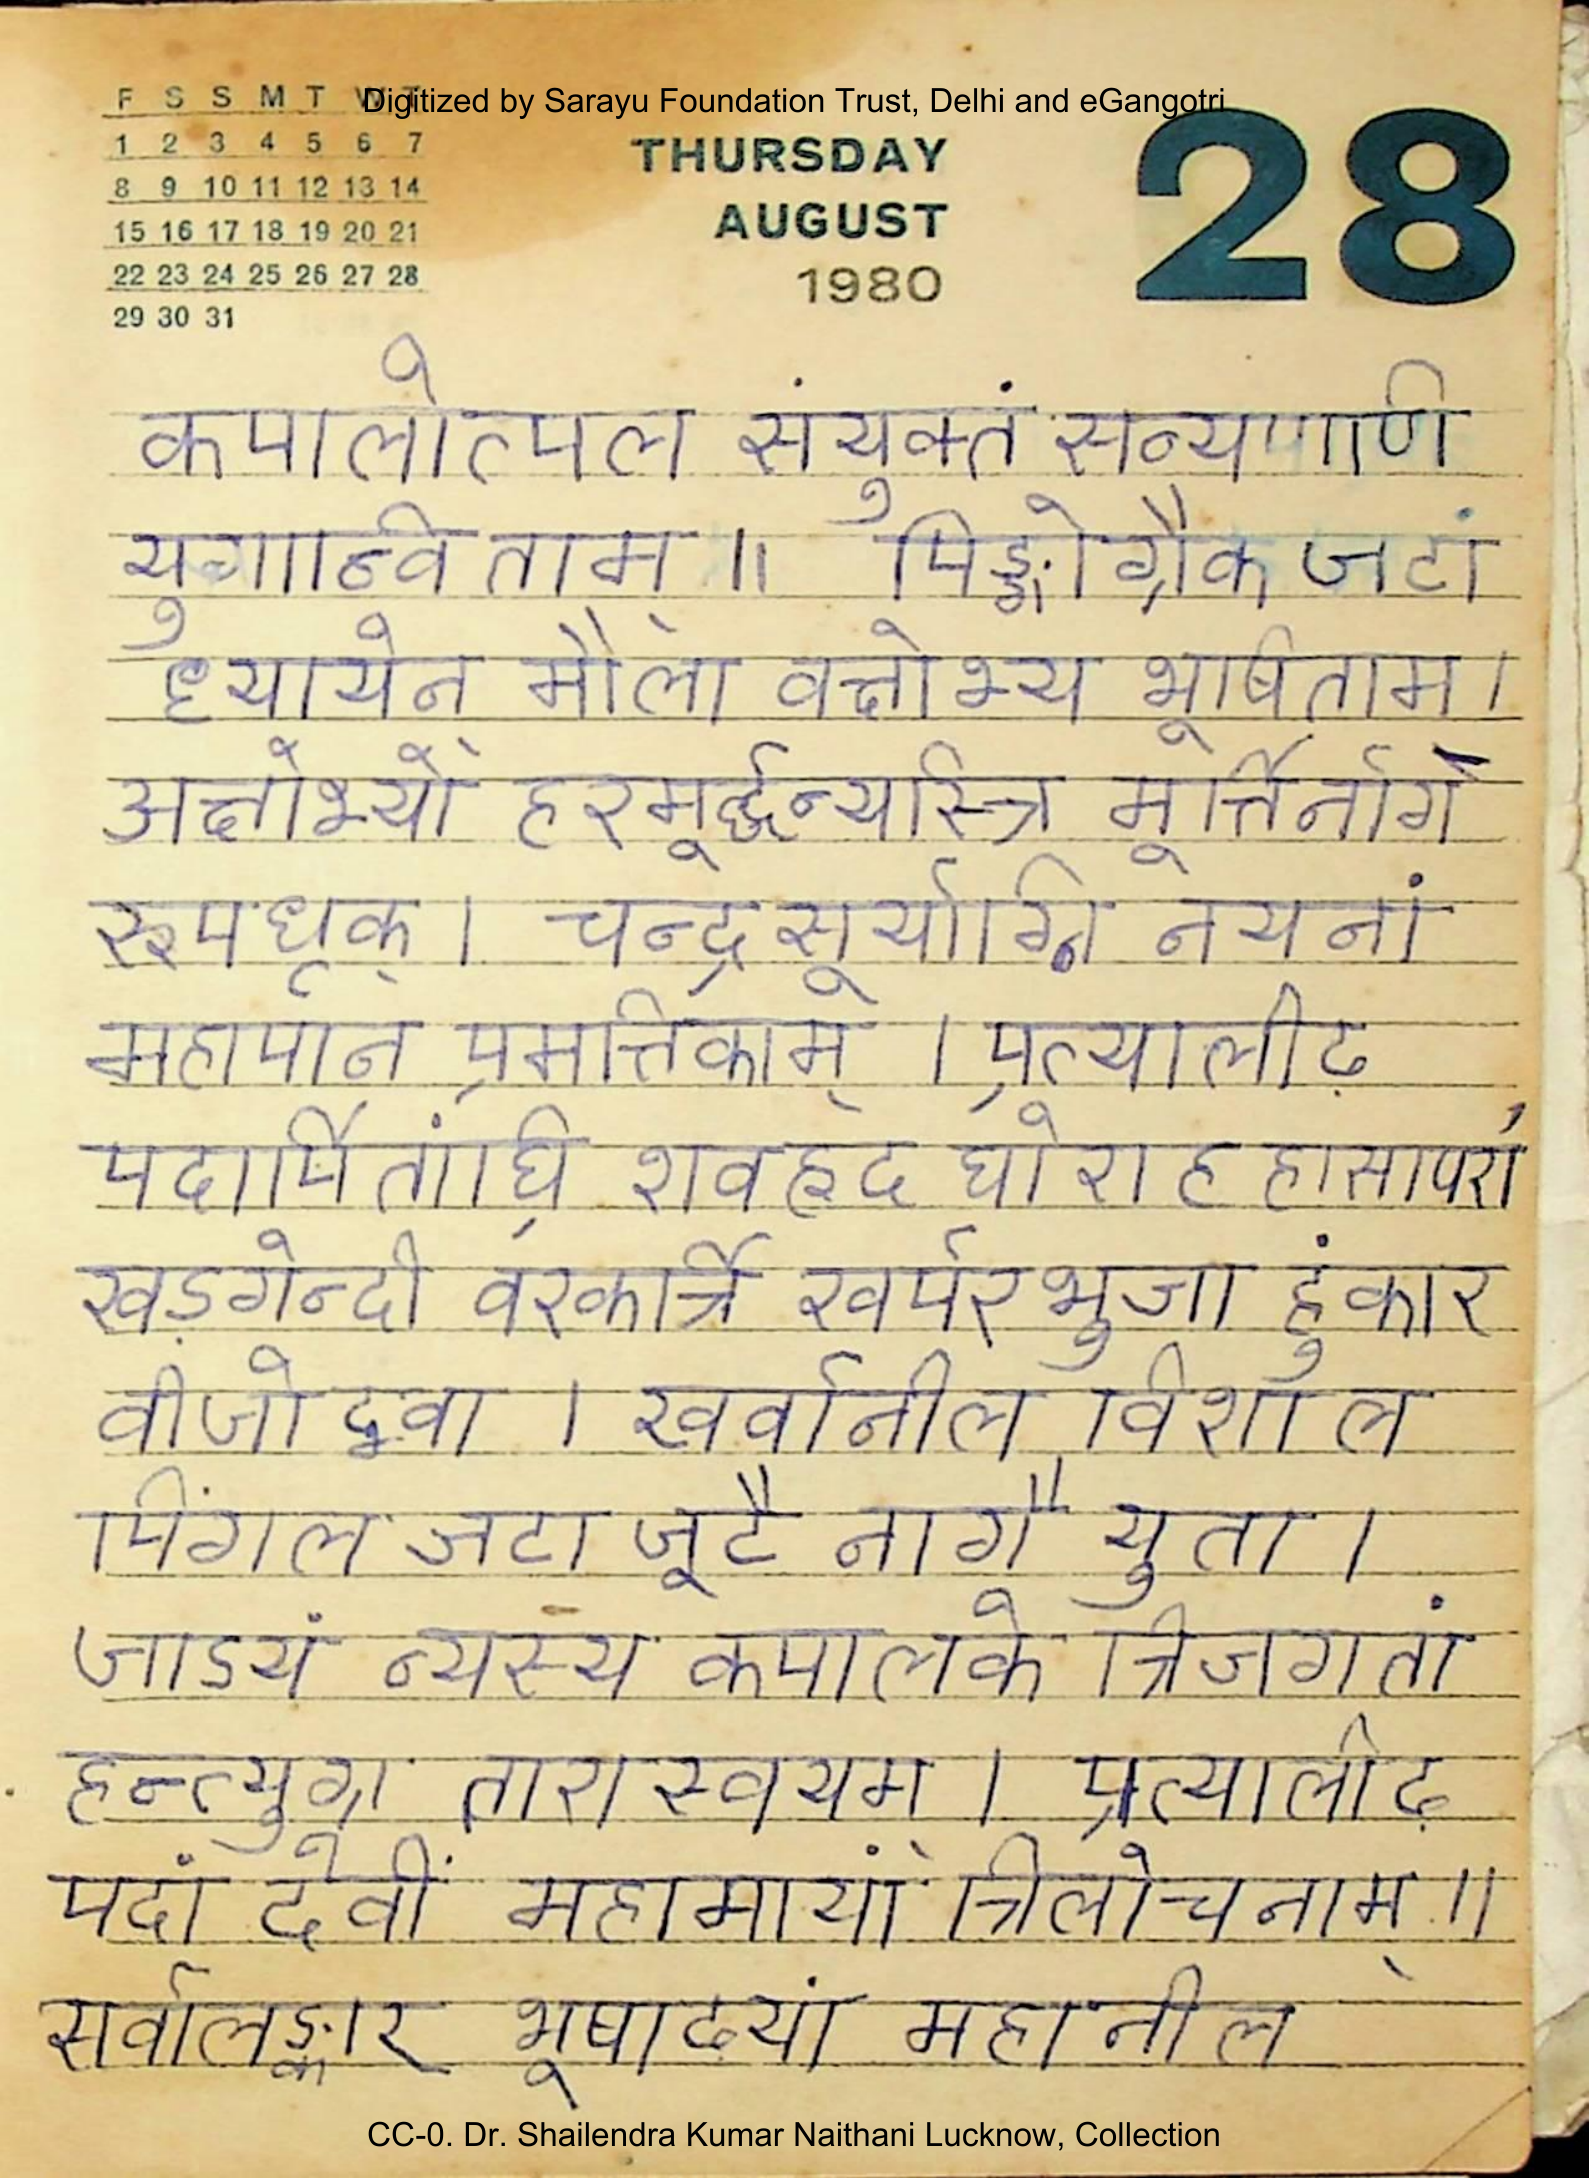 Digitized by Sarayu Foundation Trust, Delhi and eGangotri
F S S M T W T
1 2 3 4 5 6 7
8 9 10 11 12 13 14
15 16 17 18 19 20 21
22 23 24 25 26 27 28
29 30 31
THURSDAY
AUGUST
1980
28
कपालोत्पल संयुक्तं सव्यपाणि
युगान्विताम् ॥ पिङ्गोग्रैक जटां
ध्यायेन मौला वक्षोभ्य भूषिताम ।
अक्षोभ्यो हरमूर्द्धन्यस्त्रि मूर्त्तिर्नाग
रूपधृक् । चन्द्रसूर्याग्नि नयनां
महापान प्रमत्तिकाम् । प्रत्यालीढ़
पदार्पितांघ्रि शवहृद घोराट्टहासापरां
खड़गेन्दी वरकर्त्रि खर्परभुजा हुंकार
वीजोद्भवा । खर्वानील विशाल
पिंगल जटा जूटै नागै युता ।
जाडयं न्यस्य कपालके त्रिजगतां
हन्त्युग्रा तारा स्वयम । प्रत्यालीढ़
पदां देवीं महामायां त्रिलोचनाम् ॥
सर्वालङ्कार भूषाढयां महानील
CC-0. Dr. Shailendra Kumar Naithani Lucknow, Collection